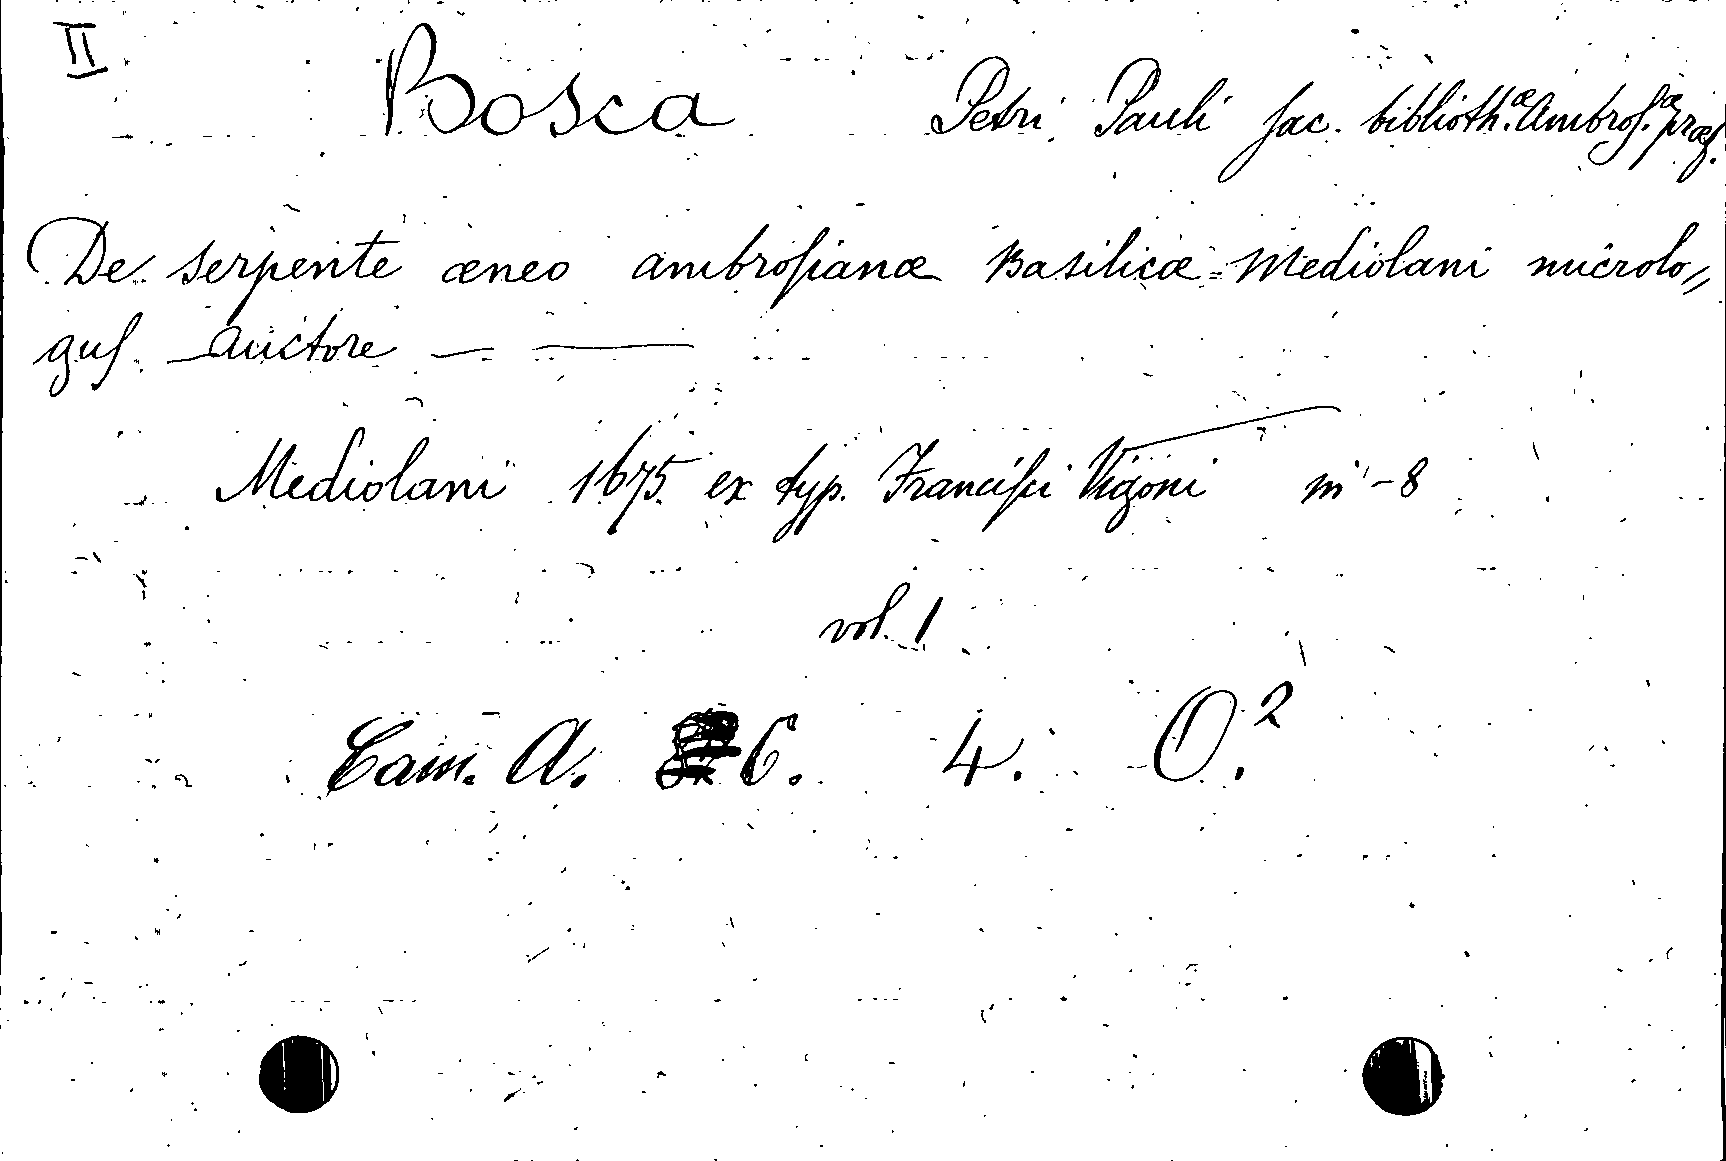 II
Bosca Petri Pauli ſac. biblioth.æ Ambroſ.æ præf.
De serpente æneo ambroſianæ Basilicæ Mediolani microlo„
guſ Auctore — —
Mediolani 1675. ex typ. Franciſci Vigoni in-8
vol. 1
Cam. A. C. 4. O.²